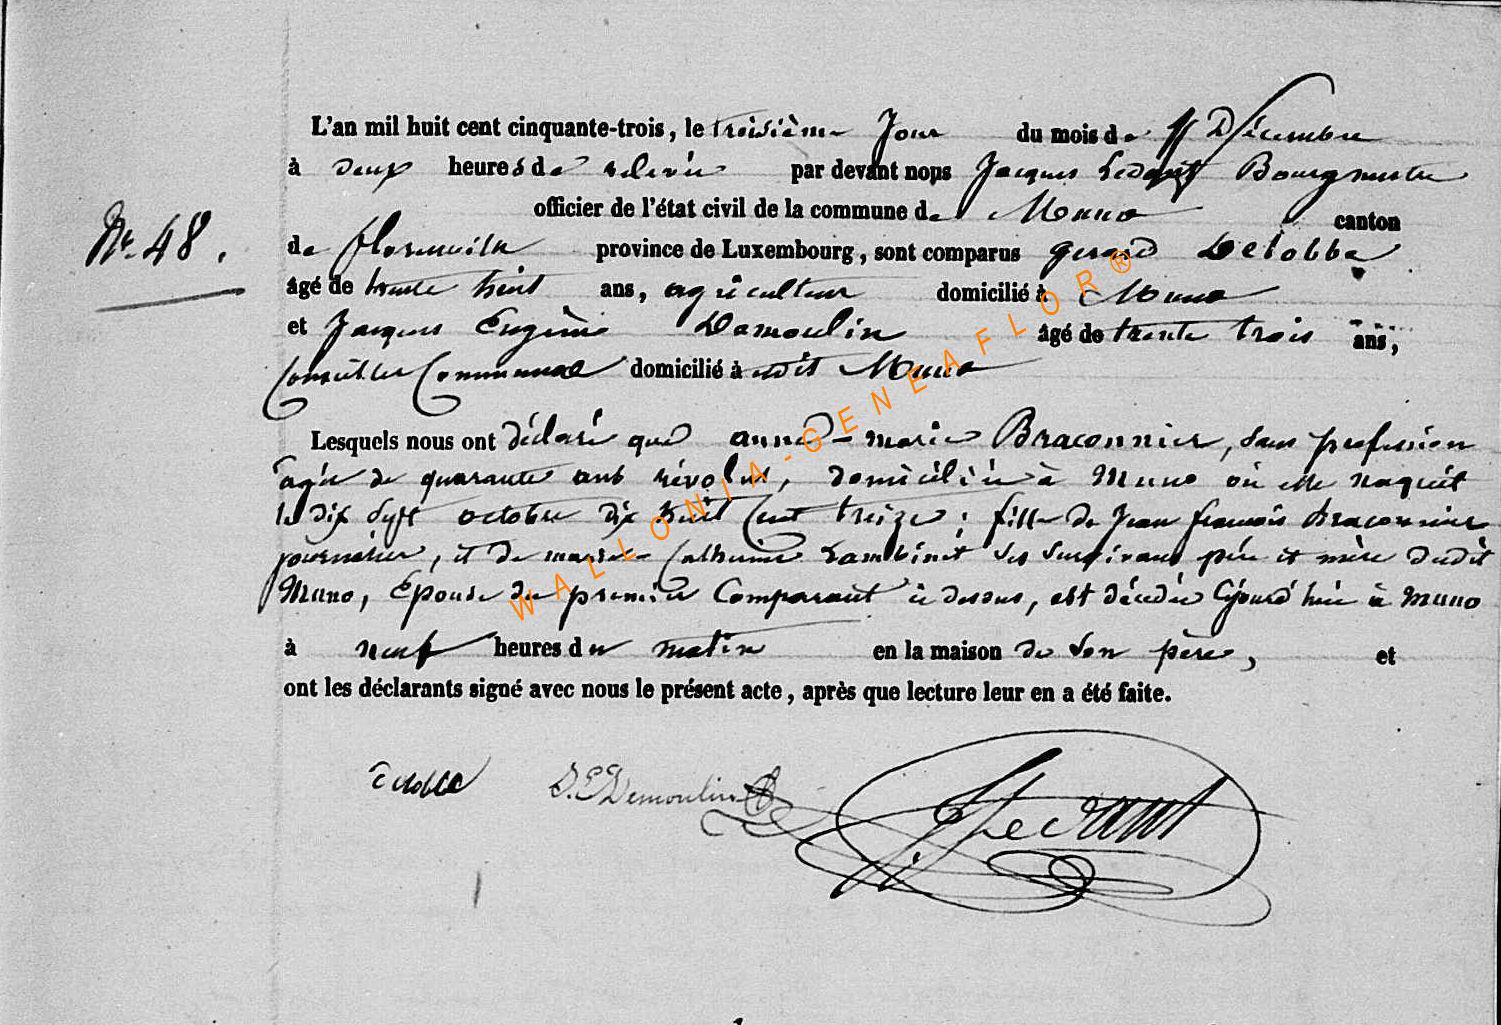 L'an mil huit cent cinquante-trois, le troisième Jour du mois de Décembre
à deux heures de relevée par devant nous Jacques Ledant Bourgmestre
officier de l'état civil de la commune de Muno canton
N.° 48.
de florenville province de Luxembourg, sont comparus gerard Delobbe
âgé de trente huit ans, agriculteur domicilié à Muno
et Jacques Eugène Damoulin âgé de trente trois ans,
Conseiller Communal domicilié à udit Muno
Lesquels nous ont déclaré que anne-marie Braconnier, sans profession
âgée de quarante ans révolus, domiciliée à Muno où elle naquit
le dix Sept octobre dix huit Cent treize; fille de Jean françois Braconnier
journalier, et de marie Catherine Lambinet ses survivans père et mère dudit
Muno, Epouse du premier Comparant ci dessus, est décédée Cejourd'hui à Muno
à neuf heures du matin en la maison de Son père, et
ont les déclarants signé avec nous le présent acte, après que lecture leur en a été faite.
Delobbe J.E Demoulin JLedant
WALLONIA-GENEAFLOR®